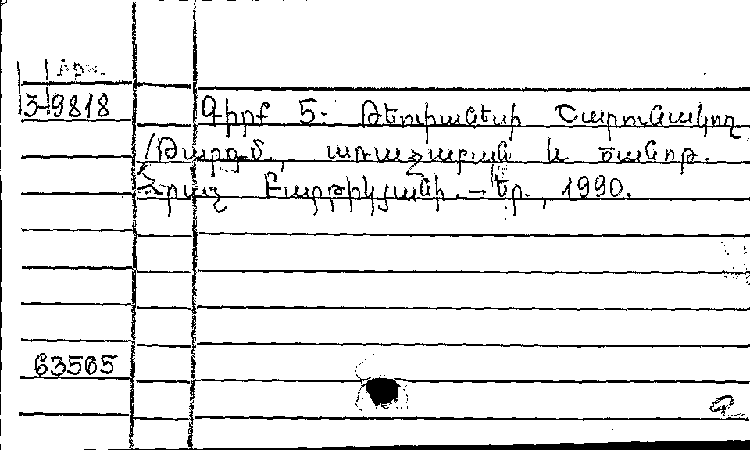 Արխ.
3-9818 Գիրք 5: Թեոփանեսի Շարունակող
/Թարգմ., առաջաբան և ծանոթ.
Հրաչ Բարթիկյանի.– Եր., 1990.
63565